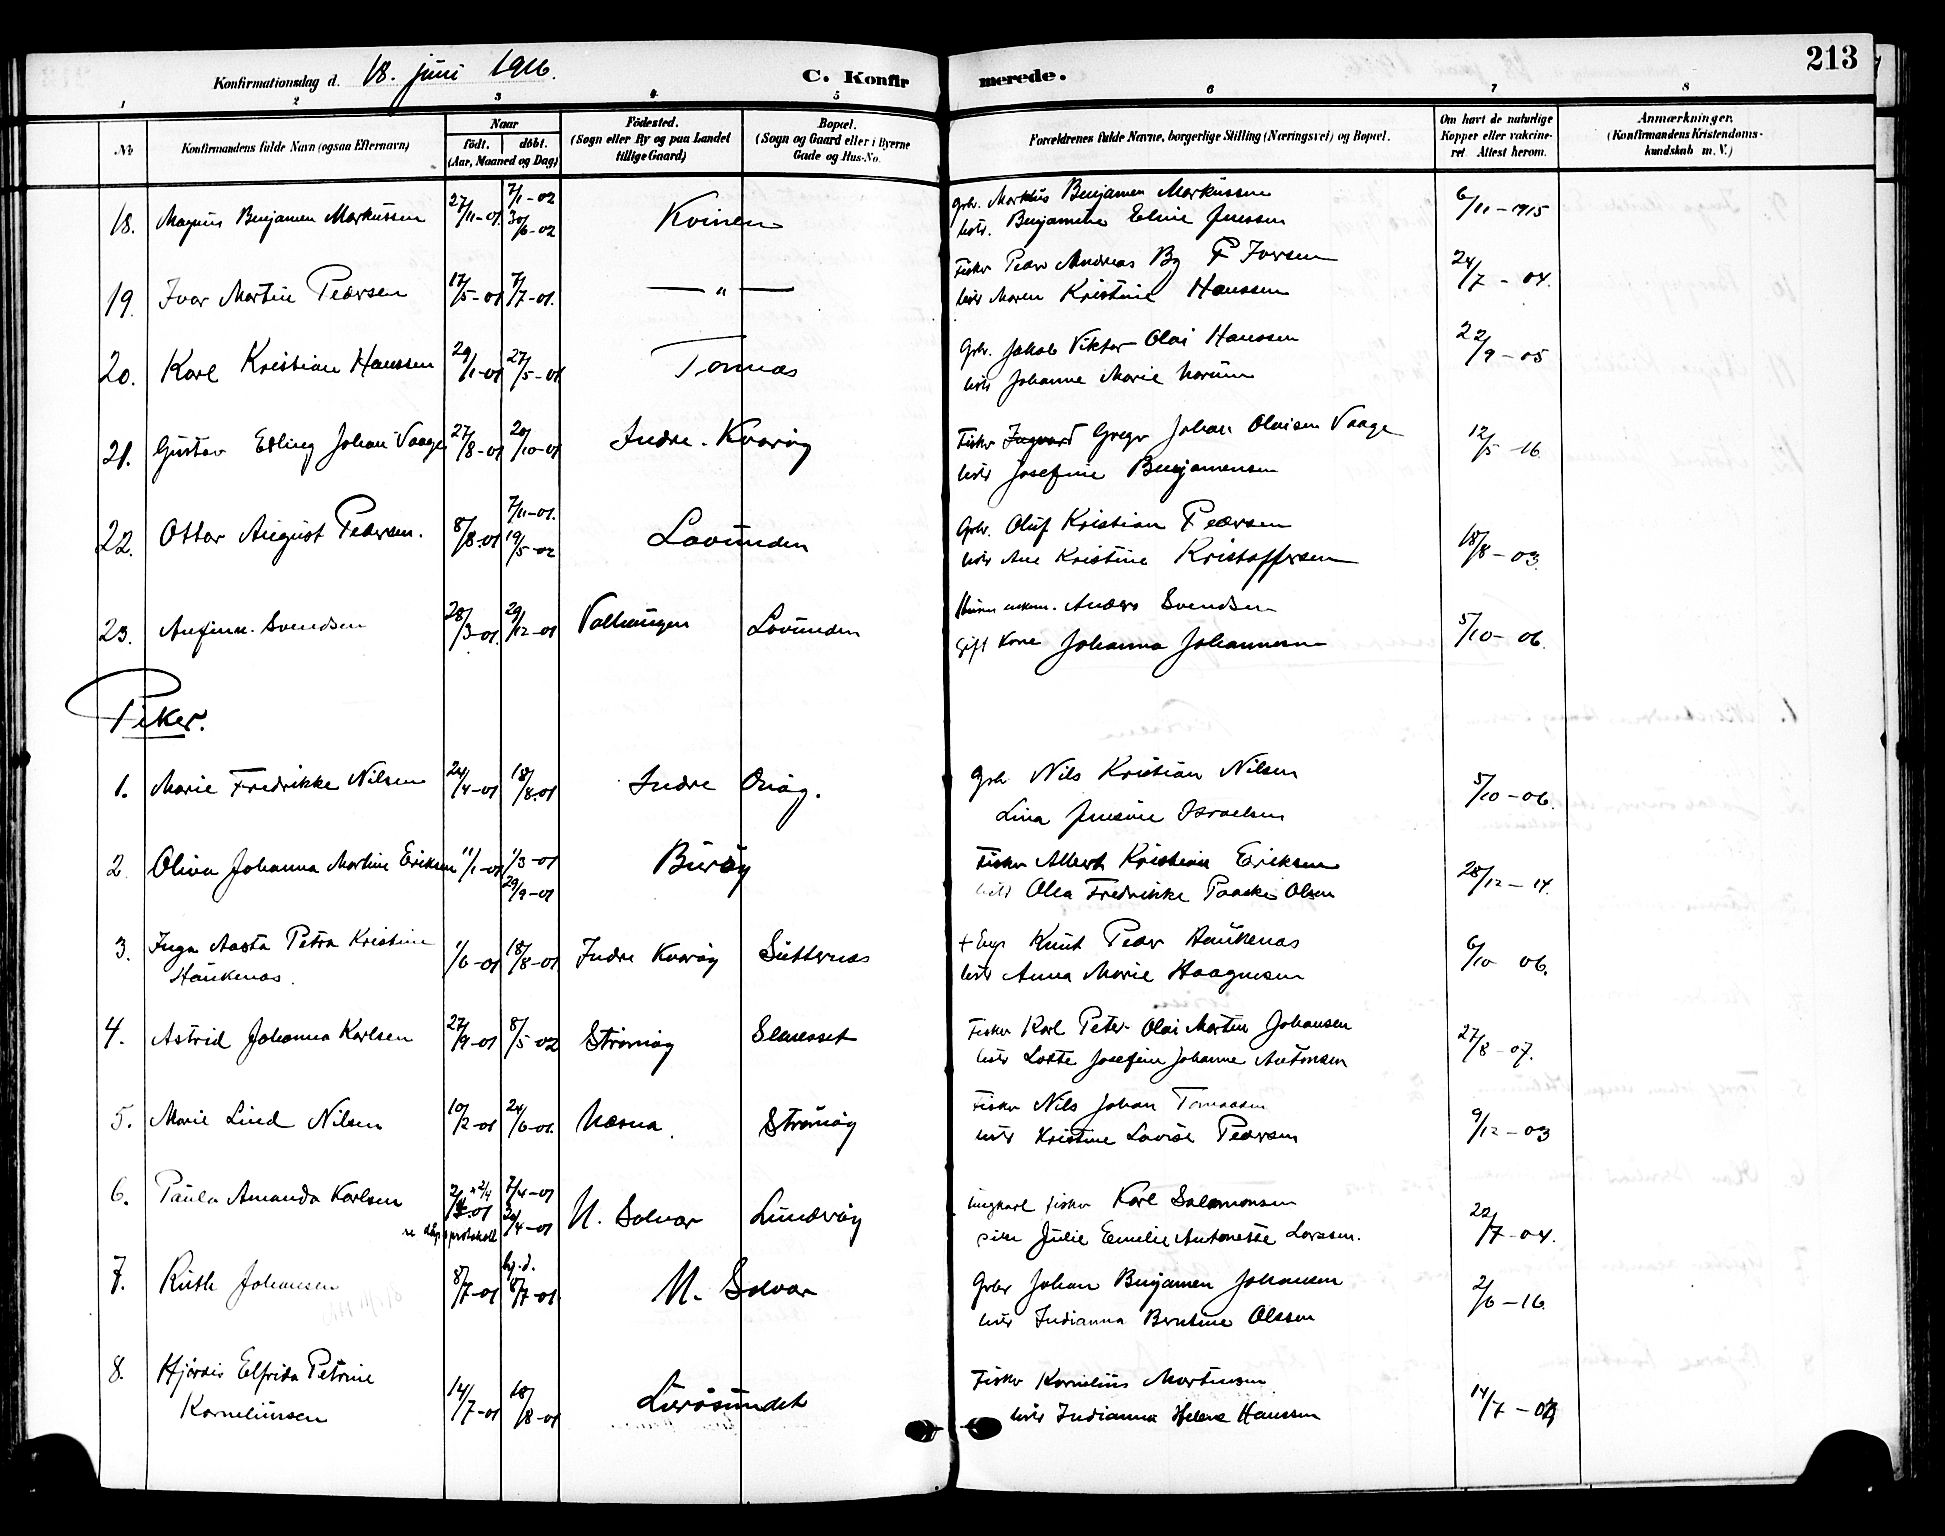 213
Konfirmationsdag d. 18. juni 1916. C. Konfirmerede.
1 2 3 4 5 6 7 8
No
Konfirmandens fulde Navn (ogsaa Efternavn)
Naar
født. døbt.
(Aar, Maaned og Dag)
Fødested.
(Sogn eller By og paa Landet
tillige Gaard)
Bopæl.
(Sogn og Gaard eller i Byerne
Gade og Hus-No.
Forældrenes fulde Navne, borgerlige Stilling (Næringsvei) og Bopæl.
Om havt de naturlige
Kopper eller vakcine-
ret Attest herom.
Anmærkninger.
(Konfirmandens Kristendoms-
kundskab m. V.)
18. Magnus Benjamen Markussen 27/11-01. 7/1-02 30/6-02 Kvinen Gbr. Markus Benjamen Markussen 6/11-1915
hstr. Benjamine Eline Jenssen
19. Ivar Martin Pedersen 17/5-01 7/7-01. — " — Fisker Peder Andreas By P Iversen 24/7-04.
hstr Maren Kristine Hanssen
20. Karl Kristian Hanssen 29/1-01 27/5-01 Tonnes Gbr. Jakob Viktor Olai Hanssen 22/9-05
hstr Johanne Marie
21. Gustav Edling Johan Vaage 27/8-01 20/10-01 Indre. Kvarøy Fisker Gregr Johan Olaisen Vaage 12/5 16.
hstr Josefine Benjamensen
22. Ottar August Pedersen. 8/8-01 7/11-01. 19/5-02 Lovunden Gbr. Oluf Kristian Pedersen 18/8-03.
hstr Ane Kristine Kristoffersen
23. Anfinn. Svendsen 28/3-01. 29/12-01 Valhaugen Lovunden Anders Svendsen 5/10-06.
gift Kone Johanna Johannesen
Piker.
1. Marie Fredrikke Nilsen 24/4-01 18/8-01 Indre Onøy. Gbr Nils Kristian Nilsen 5/10-06.
Lina Jensine Israelsen
2. Oliva Johanna Martine Eriksen 11/1-01 1/3-01 29/9-01 Burøy Fisker Albert Kristian Eriksen 28/12-14.
hstr Olea Fredrikke Paaske Olsen
3. Inga Aasta Petra Kristine 1/6-01 18/8-01 Indre Kvarøy Sütternes + Knut Peder Haukenæs 6/10 06.
Haukenæs. hstr Anna Marie Haagensen
4. Astrid Johanna Karlsen 27/9-01 8/5-02 Strømøy Slænesset Fisker Karl Peter Olai Martin Johansen 27/8-07.
hstr Lotte Josefine Johanne Antonsen
5. Marie Lind Nilsen 10/2-01 24/6-01. Næsna Strømøy Fisker Nils Johan Tomassen 9/12-03
hstr Kristine Lovise Pedersen
6. Paula Amanda Karlsen 7/4-01 N. Solvær Lundøy ungkarl fisker Karl Salamonsen 22/7-04.
pike Julie Emelie Antonette Larssen.
7. Ruth Johansen 8/7-01 hj. d. 8/7-01. N. Solvær Gbr Johan Benjamen Johansen 2/6-16.
hstr Indianna Berntine Olssen
8. Hjørdis Elfrida Petrine 14/7-01 18/8-01 Lurøsundet Fisker Kornelius Martinsen 14/7-04
Korneliussen hstr Indianna Helene Hanssen